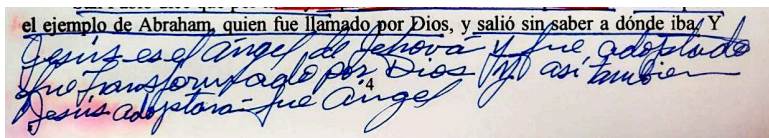 el ejemplo de Abraham, quien fue llamado por Dios, y salió sin saber a dónde iba. Y
Jesús es el ángel de Jehová y fue adoptado
fue transformado por Dios y así también
4
Jesús adoptara fue ángel